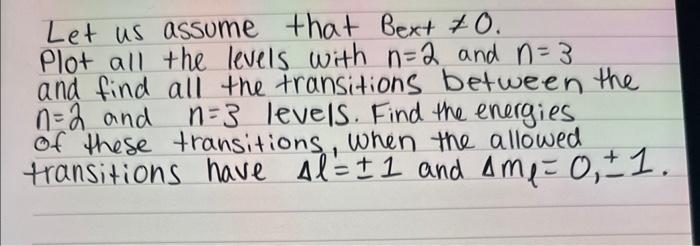 Let us assume that Bext ≠ 0.
Plot all the levels with n=2 and n=3
and find all the transitions between the
n=2 and n=3 levels. Find the energies
of these transitions, when the allowed
transitions have Δl=±1 and Δmₗ=0,±1.